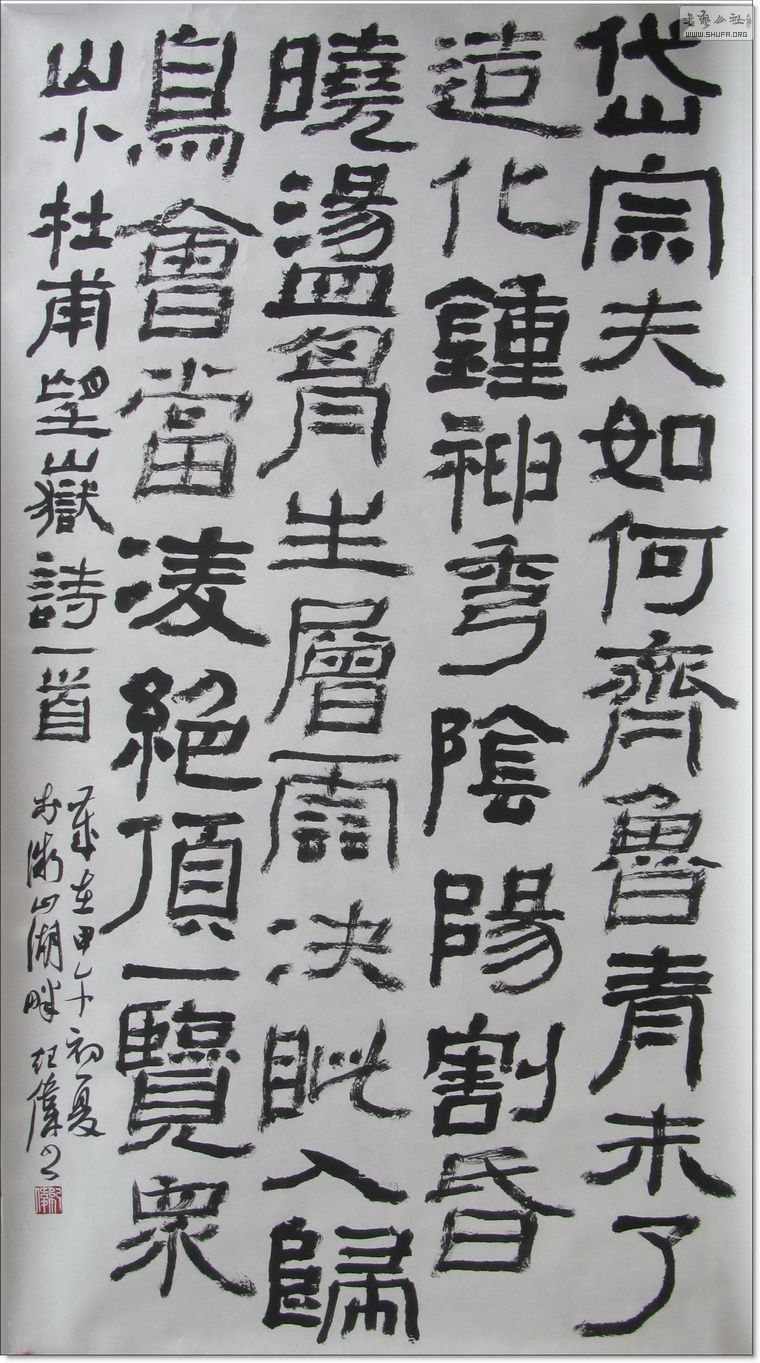 岱宗夫如何齊魯青未了
造化鍾神秀陰陽割昏
曉盪胷生層雲決眦入歸
鳥會當凌絕頂一覽衆
山小杜甫望嶽詩一首
歲在甲午初夏
於微山湖畔紀偉书
书艺公社
WWW.SHUFA.ORG